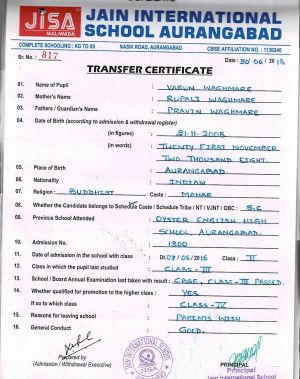 JISA
MALIWADA
JAIN INTERNATIONAL
SCHOOL AURANGABAD
COMPLETE SCHOOLING : KG TO XII NASIK ROAD, AURANGABAD CBSE AFFILIATION NO. : 1130340
Sr. No. : 817 Date : 30/06/2018
TRANSFER CERTIFICATE
01. Name of Pupil : VARUN WAGHMARE
02. Mother's Name : RUPALI WAGHMARE
03. Fathers / Guardian's Name : PRAVIN WAGHMARE
04. Date of Birth (according to admission & withdrawal register)
(in figures) : 21-11-2008
(in words) : TWENTY FIRST NOVEMBER
TWO THOUSAND EIGHT.
05. Place of Birth : AURANGABAD
06. Nationality : INDIAN
07. Religion : BUDDHIST Caste : MAHAR
08. Whether the Candidate belongs to Schedule Caste / Schedule Tribe / NT / VJNT / OBC : S.C
09. Previous School Attended : OYSTER ENGLISH HIGH
SCHOOL, AURANGABAD.
10. Admission No. : 1300
11. Date of admission in the school with class : Dt. 07/06/2016 Class : II
12. Class in which the pupil last studied : CLASS - III
13. School / Board Annual Examination last taken with result : CBSE, CLASS-III PASSED.
14. Whether qualified for promotion to the higher class : YES
If so to which class : CLASS-IV
15. Reasons for leaving school : PARENTS WISH
16. General Conduct : GOOD.
Prepared by
(Admission / Withdrawal Executive)
JAIN INTERNATIONAL SCHOOL
PRINCIPAL
Principal
Jain International School